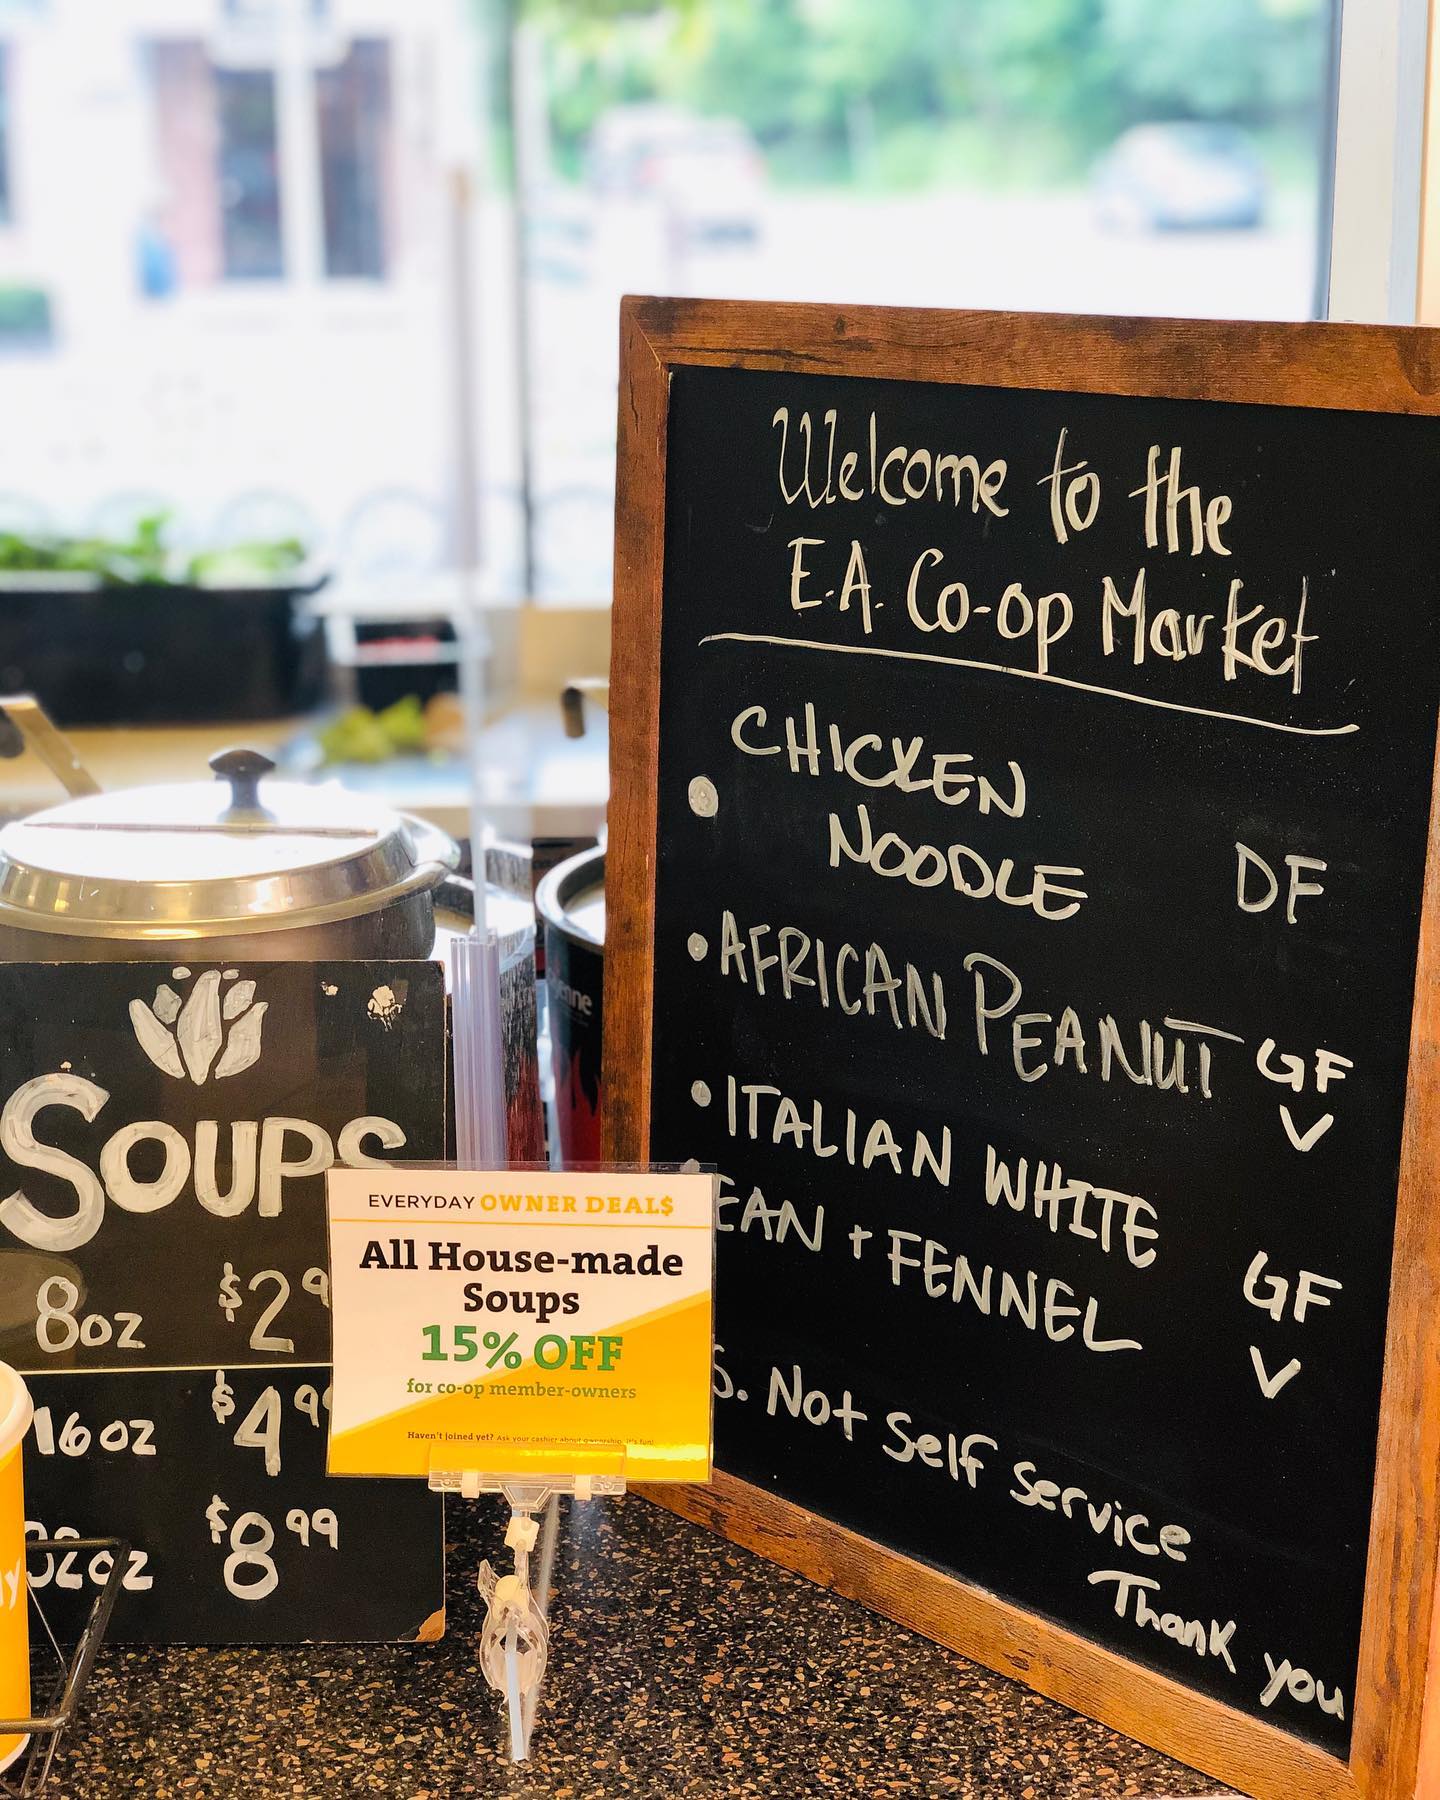 Welcome to the
E.A. Co-op Market
CHICKEN
NOODLE DF
AFRICAN PEANUT GF
V
ITALIAN WHITE
EAN + FENNEL GF
V
S. Not Self Service
Thank you
SOUPS
8oz $2 9
16oz $4 99
32oz $8 99
EVERYDAY OWNER DEAL$
All House-made
Soups
15% OFF
for co-op member-owners
Haven't joined yet? Ask your cashier about ownership. It's fun!